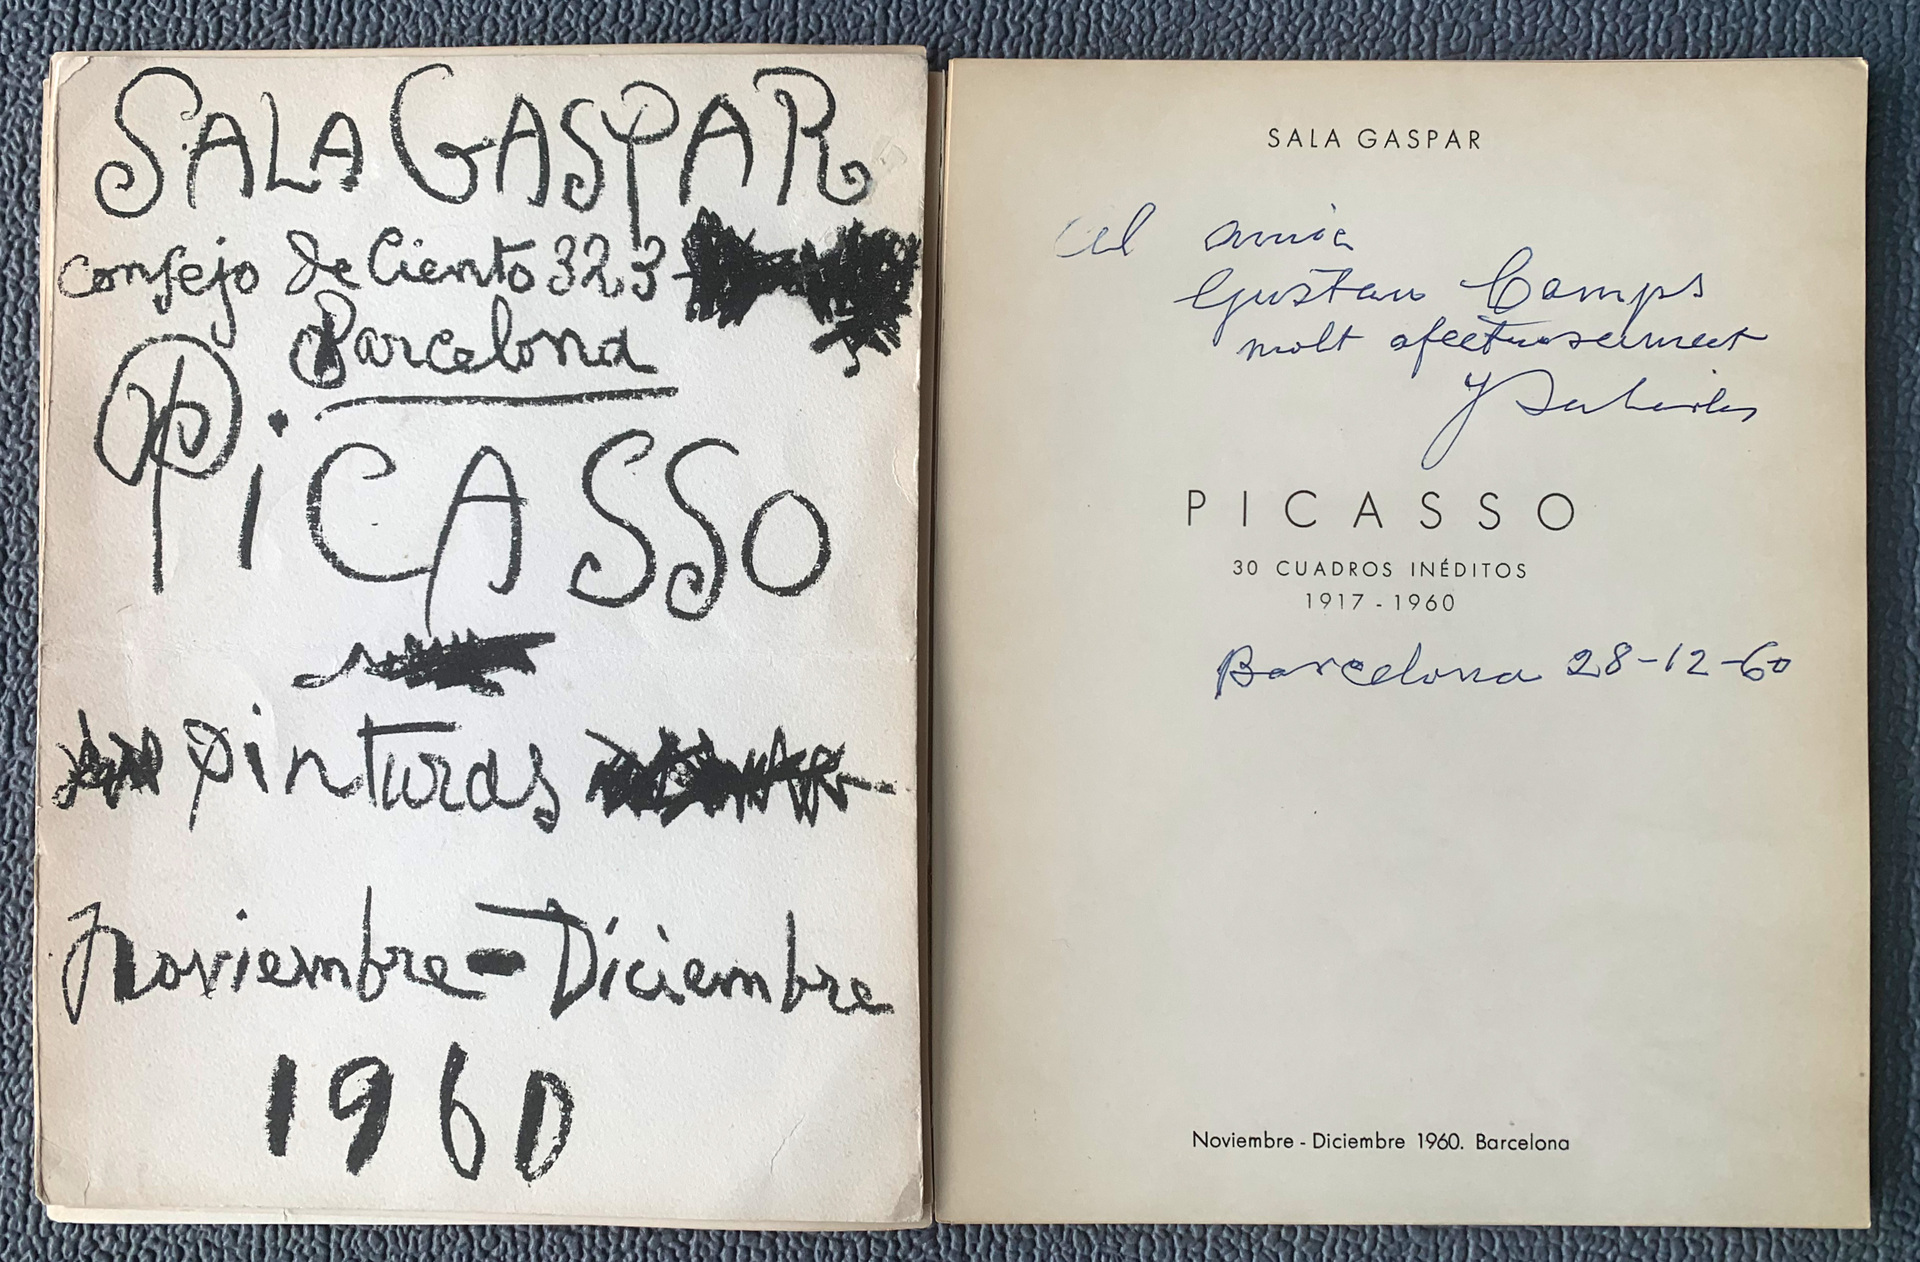 SALA GASPAR
Consejo de Ciento 323
Barcelona
PiCASSO
pinturas
Noviembre - Diciembre
1960
SALA GASPAR
al amic
Gustau Camps
molt afectuosament
PICASSO
30 CUADROS INÉDITOS
1917 - 1960
Barcelona 28-12-60
Noviembre - Diciembre 1960. Barcelona